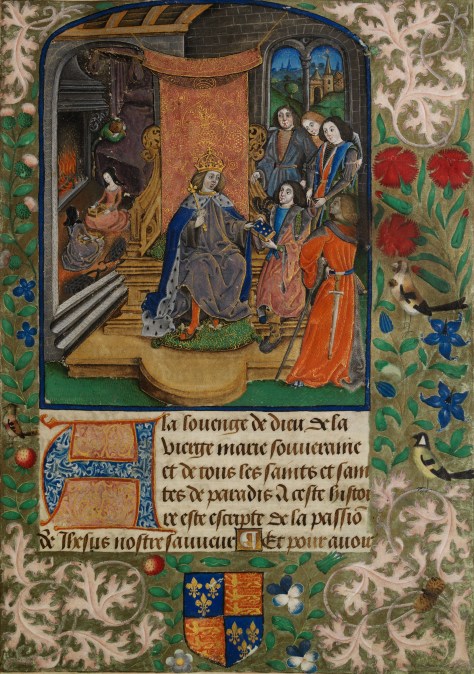 A la lovenge de dieu, de la
vierge marie souveraine
et de tous les saints et sain
tes de paradis A ceste histoi
re est escripte de la passiō
de Ihesus nostre sauveur Et pour avoir